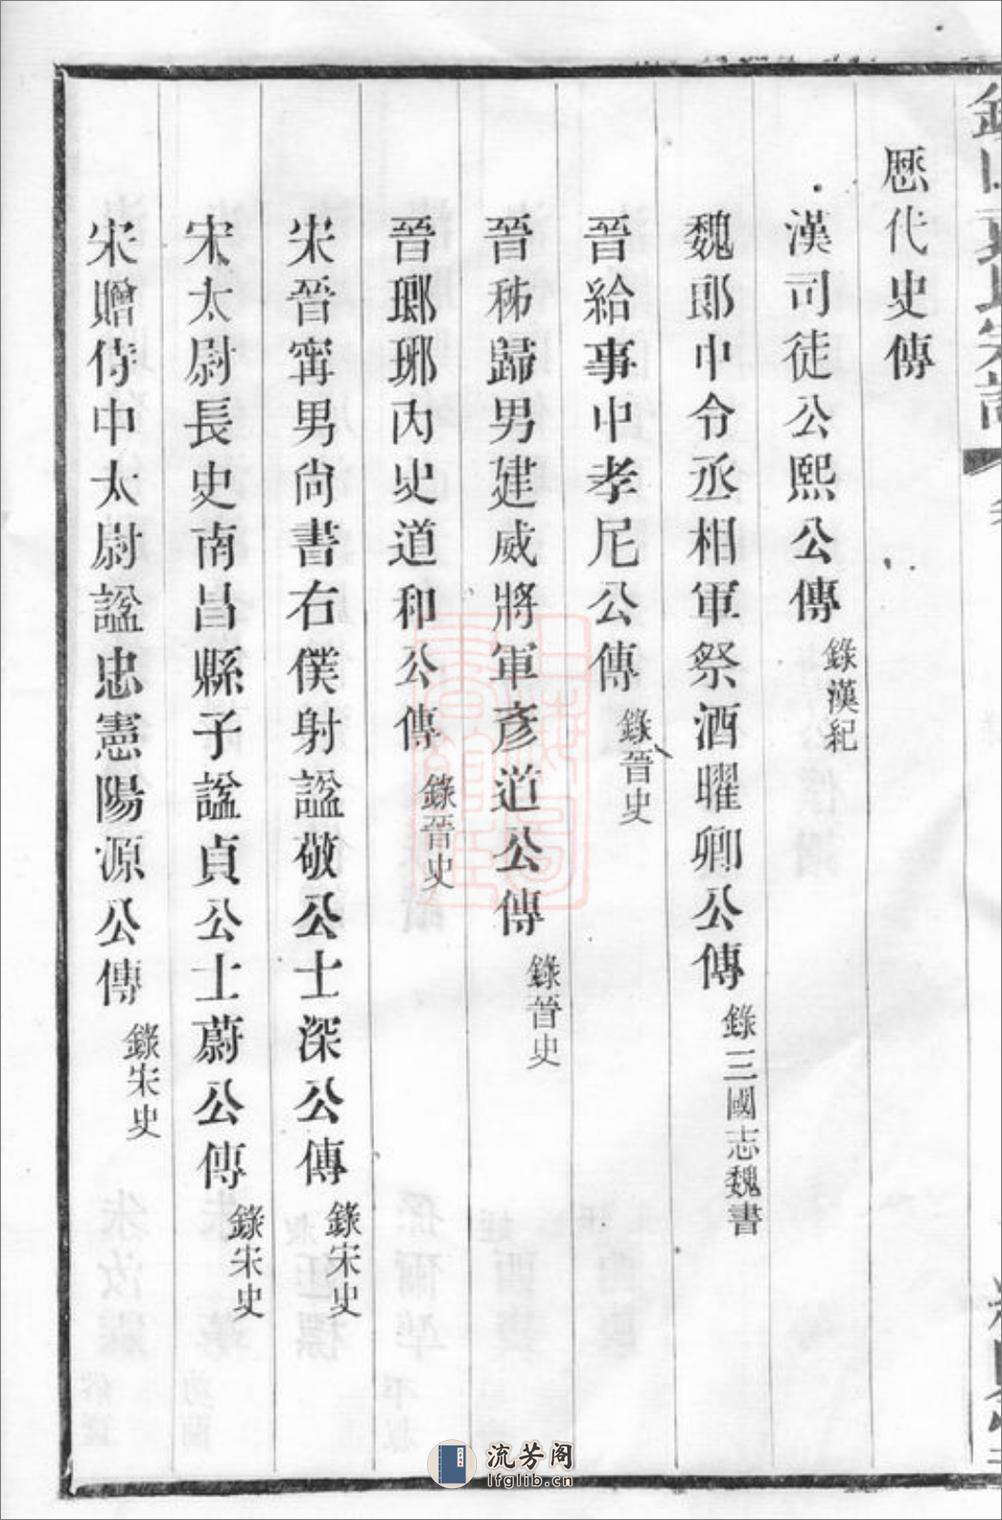 歷代史傳
漢司徒公熙公傳 錄漢紀
魏郎中令丞相軍祭酒曜卿公傳 錄三國志魏書
晉給事中孝尼公傳 錄晉史
晉秭歸男建威將軍彥道公傳 錄晉史
晉瑯琊內史道和公傳 錄晉史
宋晉甯男尚書右僕射諡敬公士深公傳 錄宋史
宋太尉長史南昌縣子諡貞公士蔚公傳 錄宋史
宋贈侍中太尉諡忠憲陽源公傳 錄宋史
流芳阁
lfglib.cn